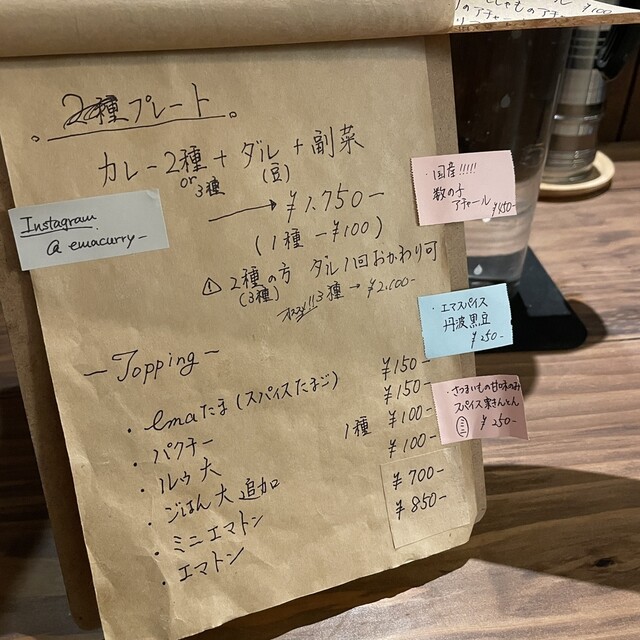 2種プレート
カレー2種 + ダル + 副菜
or 3種 (豆)
→ ¥1.750-
(1種 -¥100)
⚠ 2種の方 ダル1回おかわり可
(3種)
3種 → ¥2.100-
Instagram
@ emacurry-
- Topping -
・emaたま (スパイスたまご) ¥150-
・パクチー ¥150-
・ルゥ大 1種 ¥100-
・ごはん大 追加 ¥100-
・ミニエマトン ¥700-
・エマトン ¥850-
・国産!!!!!
数の子
アチャール
¥450-
・エマスパイス
丹波黒豆
¥250-
・さつまいもの甘味のみ
スパイス栗きんとん
ミニ ¥250-
アチャール
¥100-